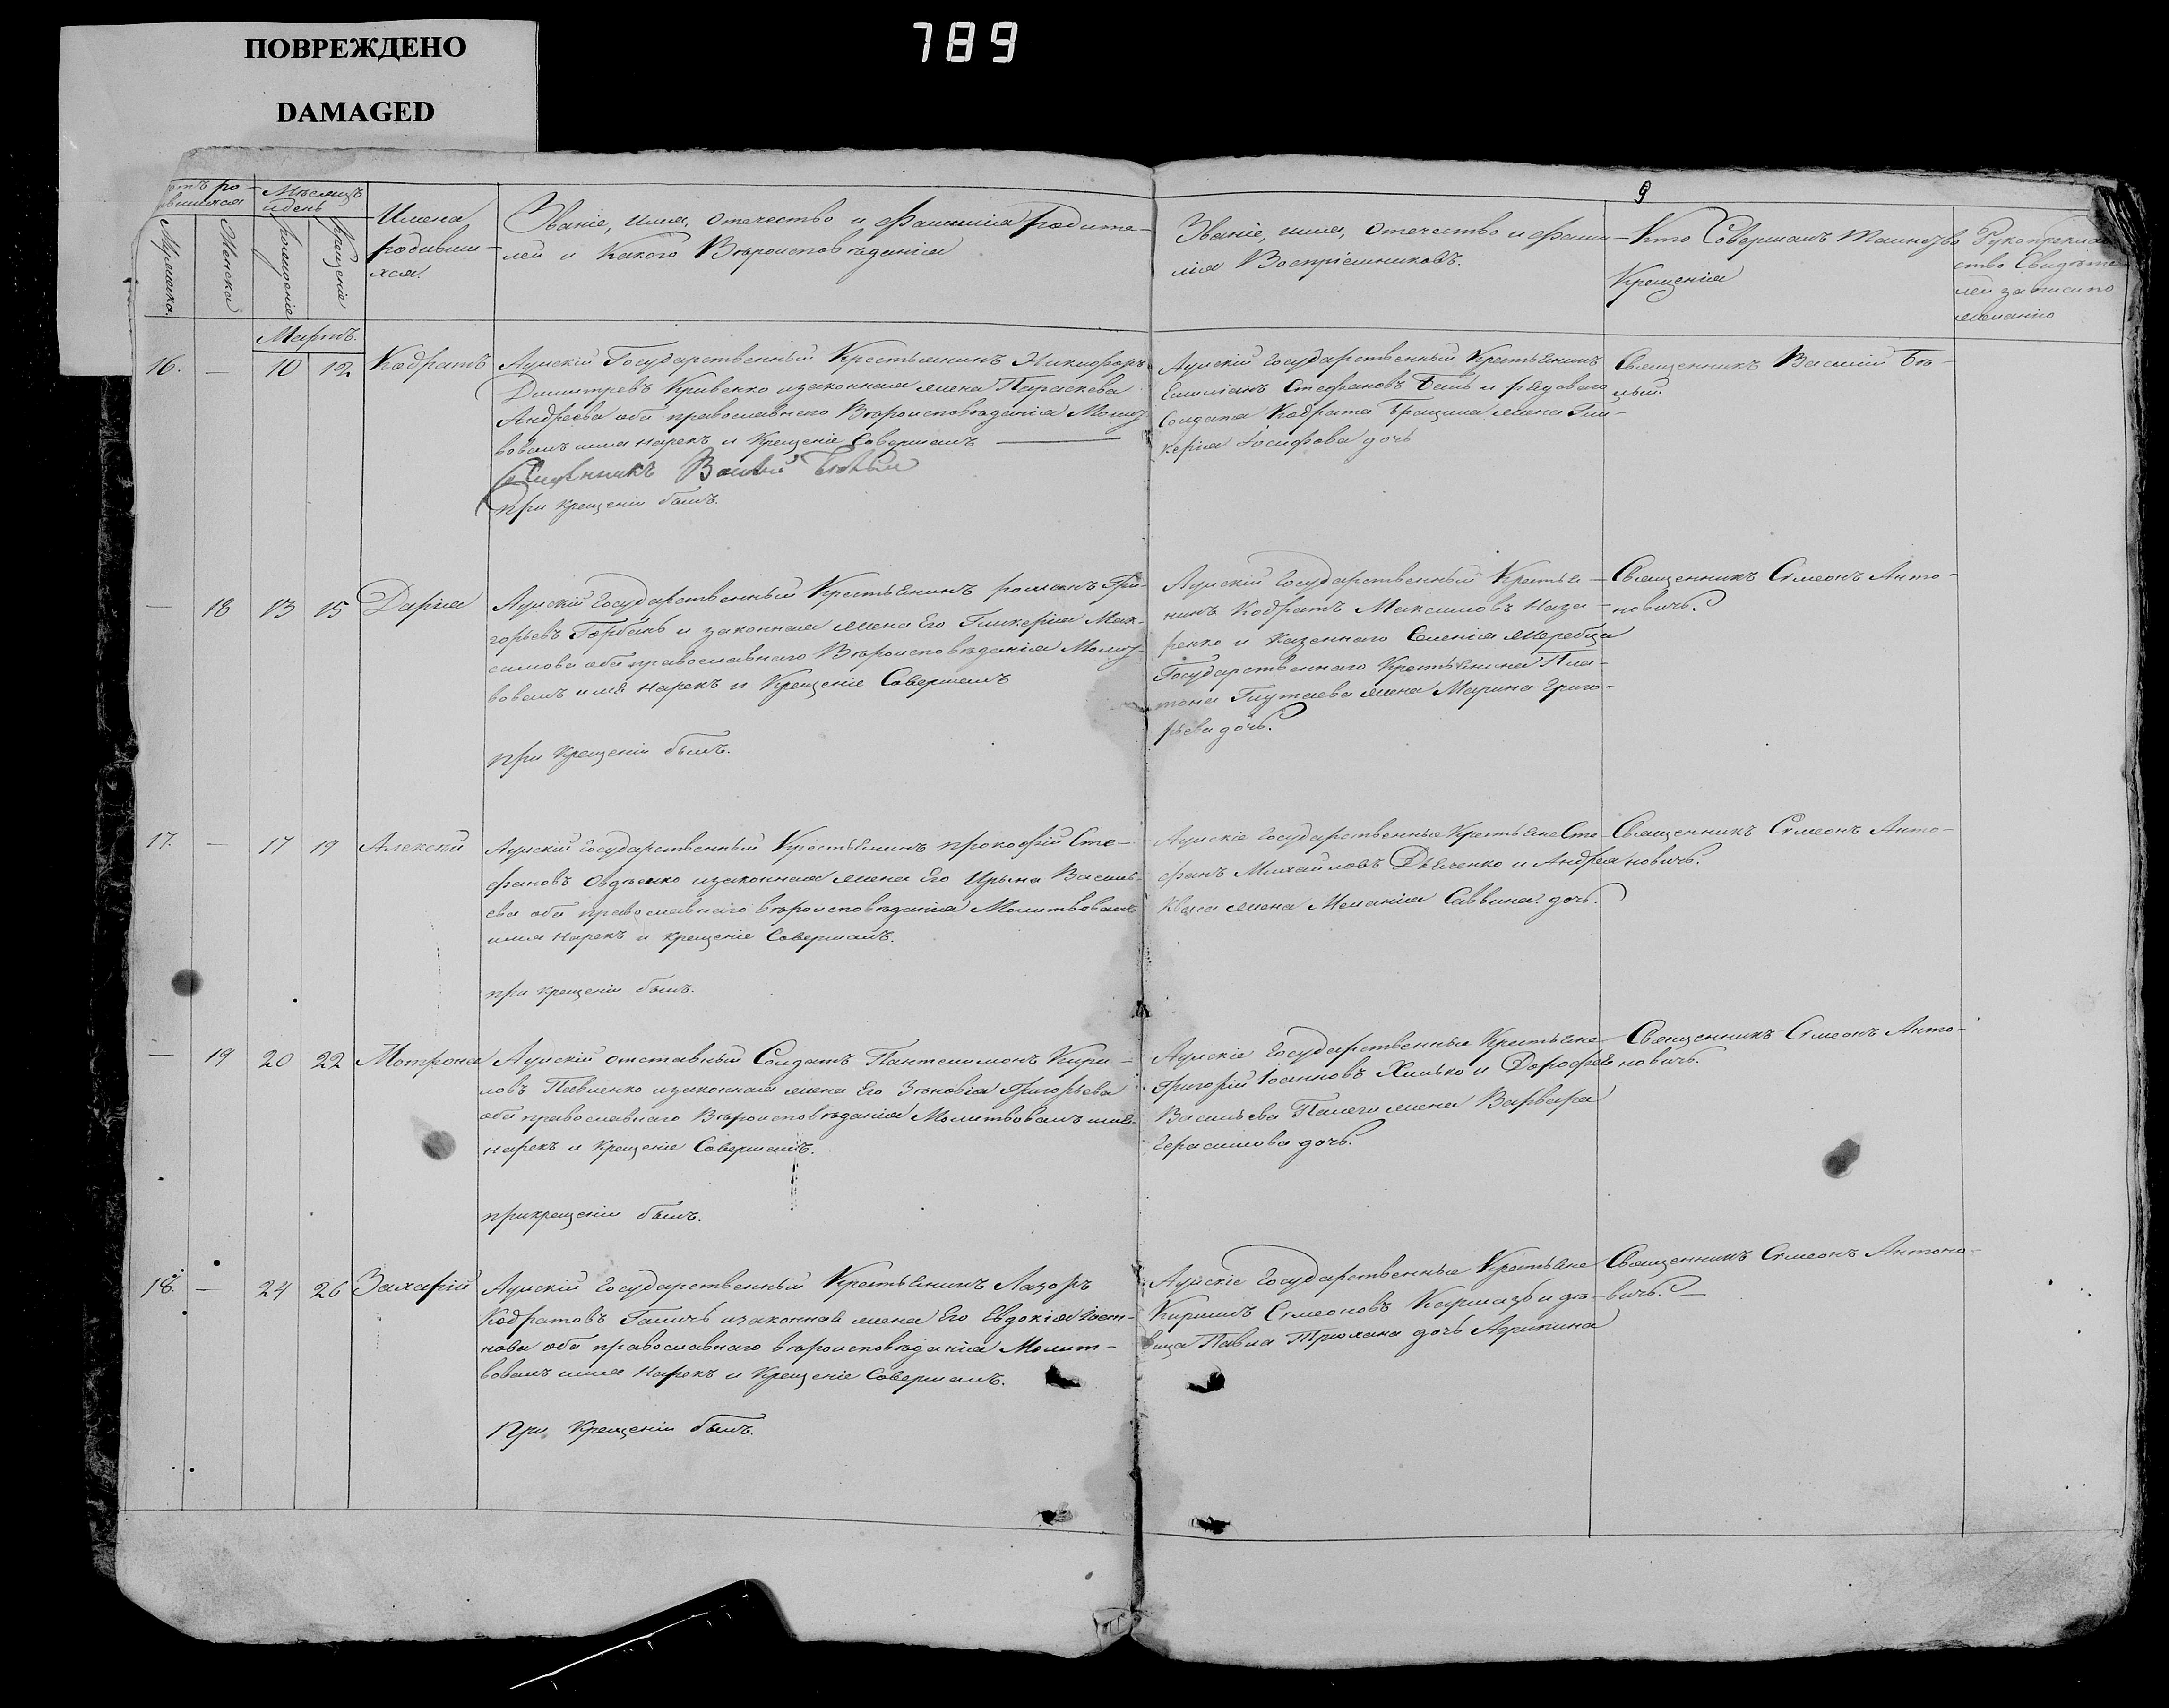 ПОВРЕЖДЕНО
DAMAGED
789
9
Мѣсяцъ
и день
Мужеска.
Женска
рожденіе
крещеніе
Имена
родивши-
хся.
Званіе, имя, отечество и фамилія родите-
лей и Какого Вѣроисповѣданія
Званіе, имя, отечество и фами-
лія Воспріемниковъ.
Кто Совершалъ таинство
Крещенія
Рукоприклад
ство Свидѣте
лей записи по
желанію
Мартъ.
16. — 10 12 Кодратъ
Аулскій Государственный Крестьянинъ Никифоръ
Димитревъ Кривенко изаконная жена Параскева
Андреева оба православнаго Вѣроисповѣданія Молит
вовалъ имя нарекъ и Крещеніе Совершалъ
Священникъ Василій Бѣлый
При крещеніи былъ.
Аулскій Государственный Крестьянинъ
Емиліанъ Стефановъ Баль и рядоваго
Солдата Кодрата Бращина жена Гли-
керія Іосифова дочь
Священникъ Василій Бѣ-
лый.
— 18 13 15 Дарія
Аулскій Государственный Крестьянинъ романъ Гри-
горьевъ Горбань и законная жена Его Гликерія Мак-
симова оба православнаго Вѣроисповѣданія Молит-
вовалъ имя нарекъ и Крещеніе Совершалъ
при Крещеніи былъ.
Аулскій Государственный Крестья-
нинъ Кодратъ Максимовъ Наза-
ренко и казеннаго Селенія
Государственнаго Крестьянина Пла-
тона жена Марина Григо-
рьева дочь.
Священникъ Симеонъ Анто-
новичъ.
17. — 17 19 Алексѣй
Аулскій Государственный Крестьянинъ прокофій Сте-
фановъ Овдѣенко изаконная жена Его Ирина Василь-
ева оба православнаго вѣроисповѣданія Молитвовалъ
имя нарекъ и крещеніе Совершалъ.
при крещеніи былъ.
Аулскіе Государственные Крестьяне Сте-
фанъ Михайловъ Дьяченко и Андрея
жена Меланія Саввина дочь.
Священникъ Симеонъ Анто-
новичъ.
— 19 20 22 Мотрона
Аулскій отставный Солдатъ Пантелимонъ Кири-
ловъ Павленко изаконная жена Его Зѣновія Григорьева
оба православнаго Вѣроисповѣданія Молитвовалъ имя
нарекъ и Крещеніе Совершалъ.
прикрещеніи былъ.
Аулскіе Государственные Крестьяне
Григорій Іоанновъ Хилько и Дорофея
Васильева жена Варвара
Герасимова дочь.
Священникъ Симеонъ Анто-
новичъ.
18. — 24 26 Захарій
Аулскій Государственный Крестьянинъ Лазоръ
Кодратовъ Галичь изаконная жена Его Евдокія Іоан-
нова оба православнаго вѣроисповѣданія Молит-
вовалъ имя нарекъ и Крещеніе Совершалъ.
При Крещеніи былъ.
Аулскіе Государственные Крестьяне
Кирилъ Симеоновъ Кармазь и дѣ-
вица Павла Трюхана дочь Агрипина
Священникъ Симеонъ Антоно-
вичъ.